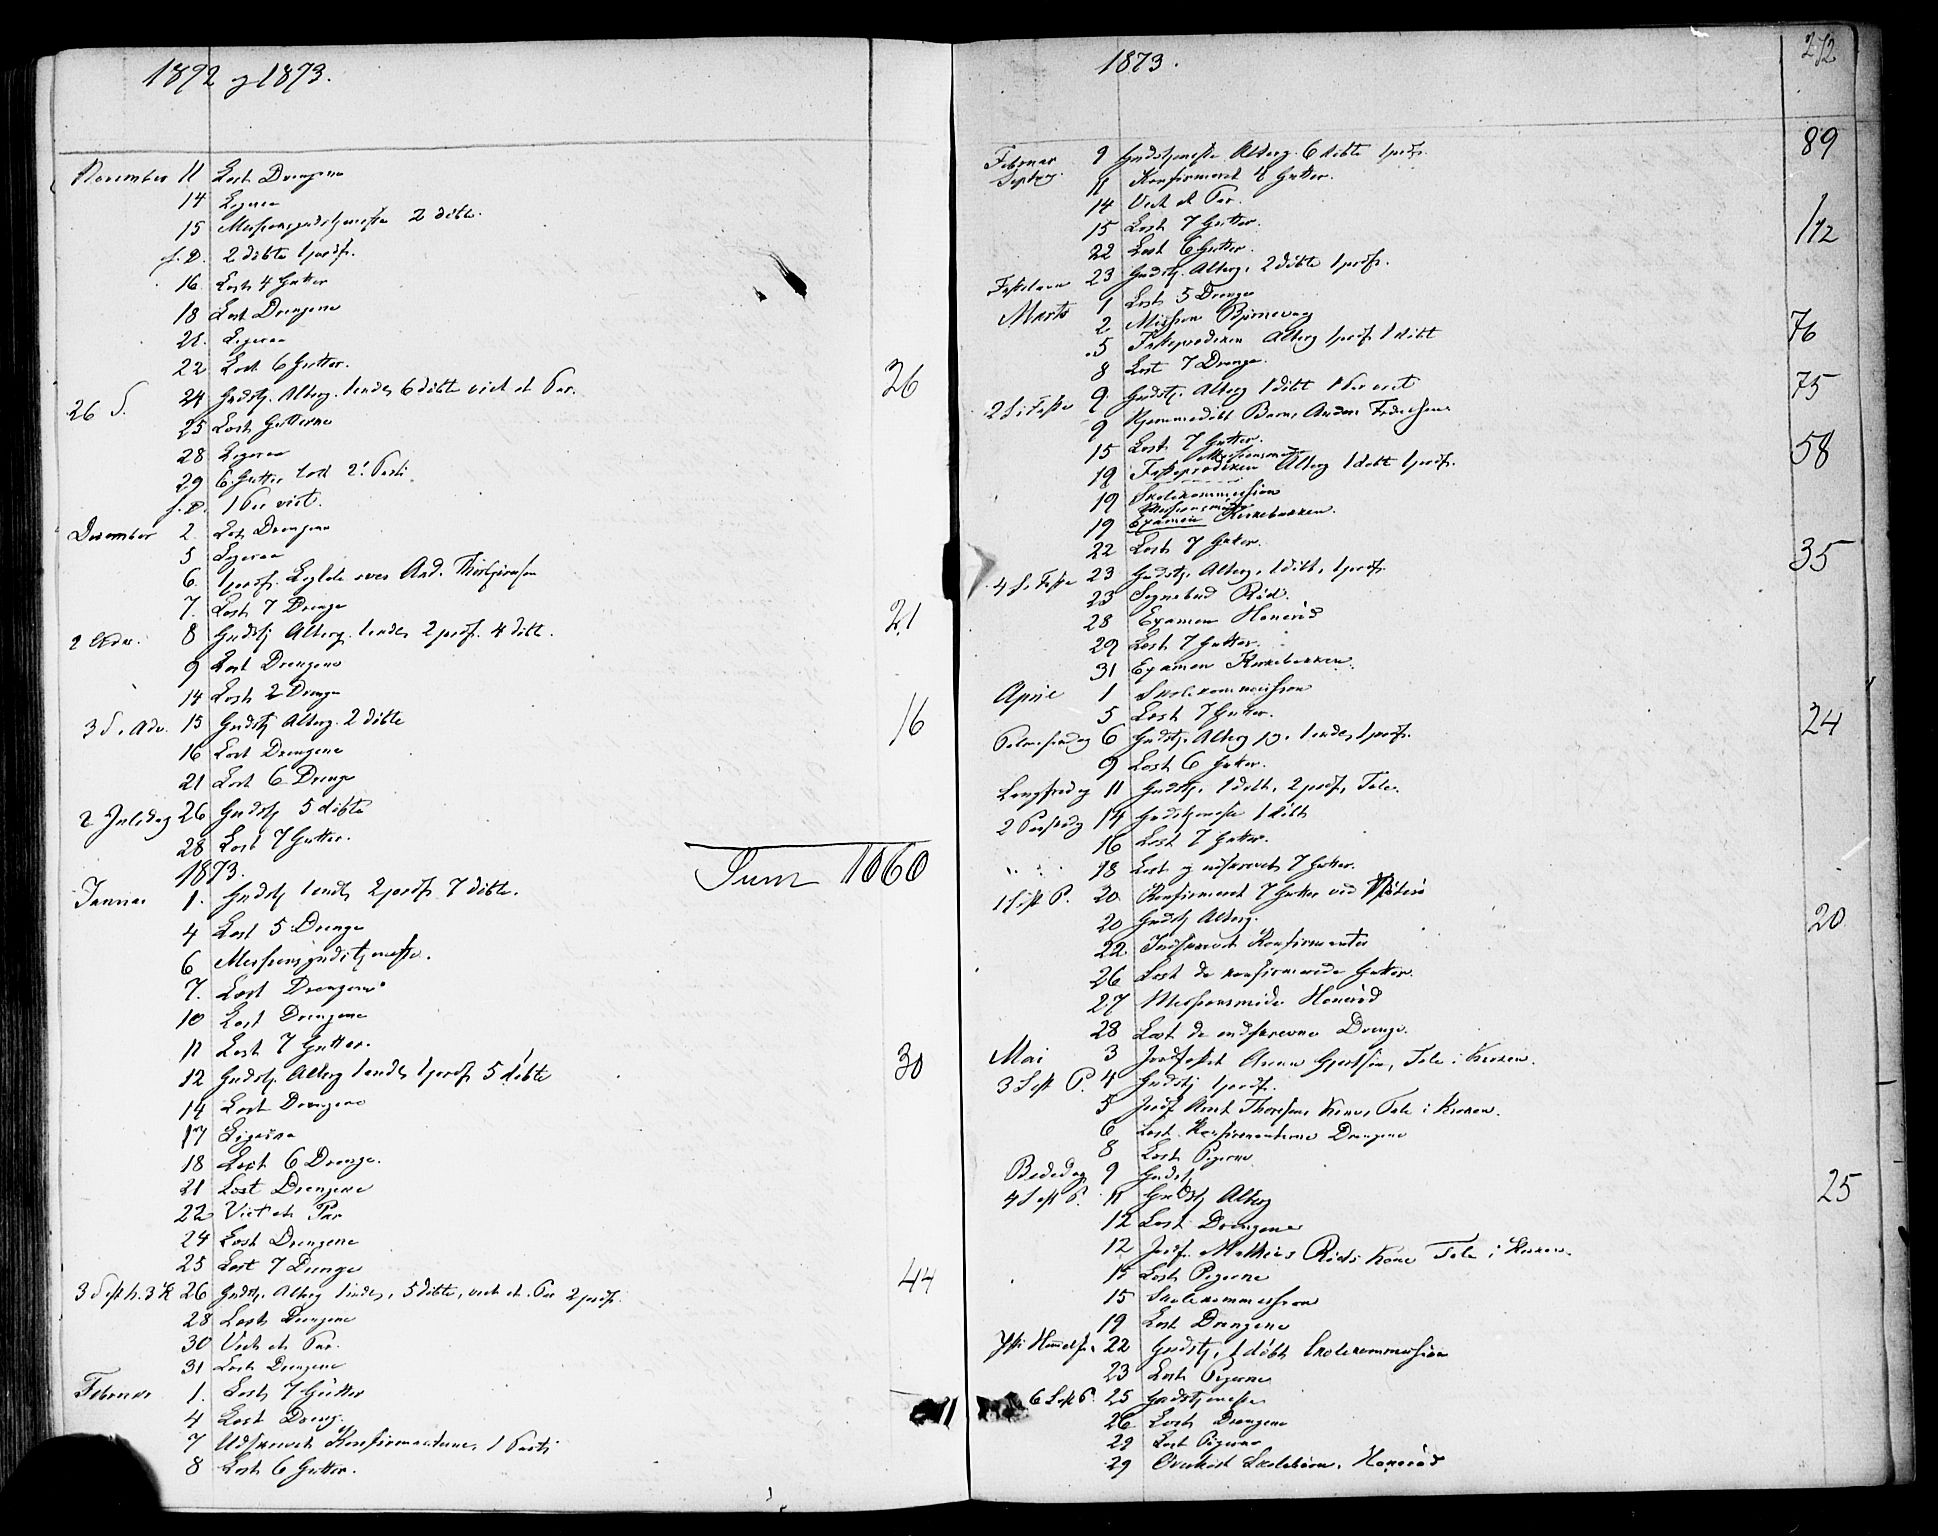 1872 og 1873.
November 11 Læst Drengene
14 Ligesaa
15 Messionsgudstjeneste 2 döbte.
s. D. 2 döbte 1 jordf.
16 Læst 4 Gutter
18 Læst Drengene
21. Ligesaa
22 Læst 6 Gutter.
26 S. 24 Gudstj. Altërg. 1 indl. 6 döbte viet et Par. 26
25 Læst Gutterne
28 Ligesaa
29 6 Gutter læst 2. Parti.
s. D. 1 Par viet.
December 2. Læst Drengene
5 Ligesaa
6. 1 jordf. And. Thorbjörnsen
7. Læst 7 Drenge
2 Adv. 8 Gudstj Alterg. 1 indl. 2 jordf. 4 döbt. 21
9 Læst Drengene
14 Læst 2 Drenge
3 S. Adv. 15 Gudstj Alterg. 2 döbte 16
16 Læst Drengene
21 Læst 6 Drenge
2 Juledag 26 Gudstj 5 döbte
28 Læst 7 Gutter.
Sum 1060
1873.
Januar 1. Gudstj 1 indl. 2 jordf. 7 döbte.
4 Læst 5 Drenge
6 Messionsgudstjeneste.
7. Læst Drengene
10 Læst Drengene
11 Læst 7 Gutter.
12 Gudstj. Alterg 1 indl. 1 jordf. 5 döbte 30
14 Læst Drengene
17 Ligesaa
18 Læst 6 Drenge.
21 Læst Drengene
22 Viet et Par
24 Læst Drengene
25 Læst 7 Drenge
3 S. e. h. 3 K 26 Gudstj. Alterg 1 indl. 5 döbte, viet et Par 2 jordf. 44
28 Læst Drengene
30 Viet et Par.
31 Læst Drengene
Februar 1. Læst 7 Gutter
4 Læst Dreng.
7 Udskrevet Konfirmanterne, 1 Parti
8 Læst 6 Gutter.
1873. 272
Februar 9 Gudstjeneste Alterg. 6 döbte 1 jordf. 89
11 Konfirmeret 8 Gutter.
14 Viet et Par.
15 Læst 7 Gutter.
22 Læst 6 Gutter.
Fastelavn 23 Gudstj. Alterg. 2 döbte 1 jordf. 112
Marts 1 Læst 5 Drenge
2 Mission Bjørnevaag
5 Fasteprædiken Alterg 1 jordf 1 döbt 76
8 Læst 7 Drenge.
2 S. i Faste 9 Gudstj. Alterg 1 döbt 1 Par viet 75
9 Hjemmedöbt Barn,
15 Læst 7 Gutter.
19 Fasteprædiken Alterg 1 döbt 1 jordf. 58
19 Skolekommission
19 Examen Kirkebakken.
22 Læst 7 Gutter.
4 S. i Faste 23 Gudstj. Alterg, 1 döbt, 1 jordf. 35
23 Sognebud Röd.
28 Examen Haneröd
29 Læst 7 Gutter.
31 Examen Kirkebakken.
April 1 Skolekommission
5 Læst 7 Gutter.
Palmesöndag 6 Gudstj. Alterg 1 indl. 1 jordf. 24
9 Læst 6 Gutter.
Langfredag 11 Gudstj. 1 döbt, 2 jordf. Tale.
2 Paaskedag 14 Gudstjeneste 1 döbt
16 Læst 7 Gutter.
18 Læst og udskrevet 7 Gutter.
1 S. e. P. 20. Konfirmeret 7 Gutter ved
20 Gudstj Alterg. 20
22. Indskrevet Konfirmanter
26 Læst de konfirmerede Gutter.
27 Messionsmöde Haneröd
28 Læst de indskrevne Drenge.
Mai 3 Jordfæstet Gjertsen, Tale i Kirken.
3 S. e. P. 4 Gudstj 1 jordf.
5 Jordf Thoresens Kone, Tale i Kirken.
6 Læst Konfirmanterne Drengene
8 Læst Pigerne
Bededag 9 Gudstj
4 S. e. P. 11 Gudstj Alterg 25
12 Læst Drengene
12 Jordf. Mathias Röds Kone Tale i Kirken.
15 Læst Pigerne
15 Skolekommission
19 Læst Drengene
Xsti Himmelf. 22 Gudstj. 1 döbt Skolekommission
23 Læst Pigerne
6 S. e. P. 25 Gudstjeneste
26 Læst Drengene
29 Læst Pigerne
29 Overhørt Skolebörn. Haneröd